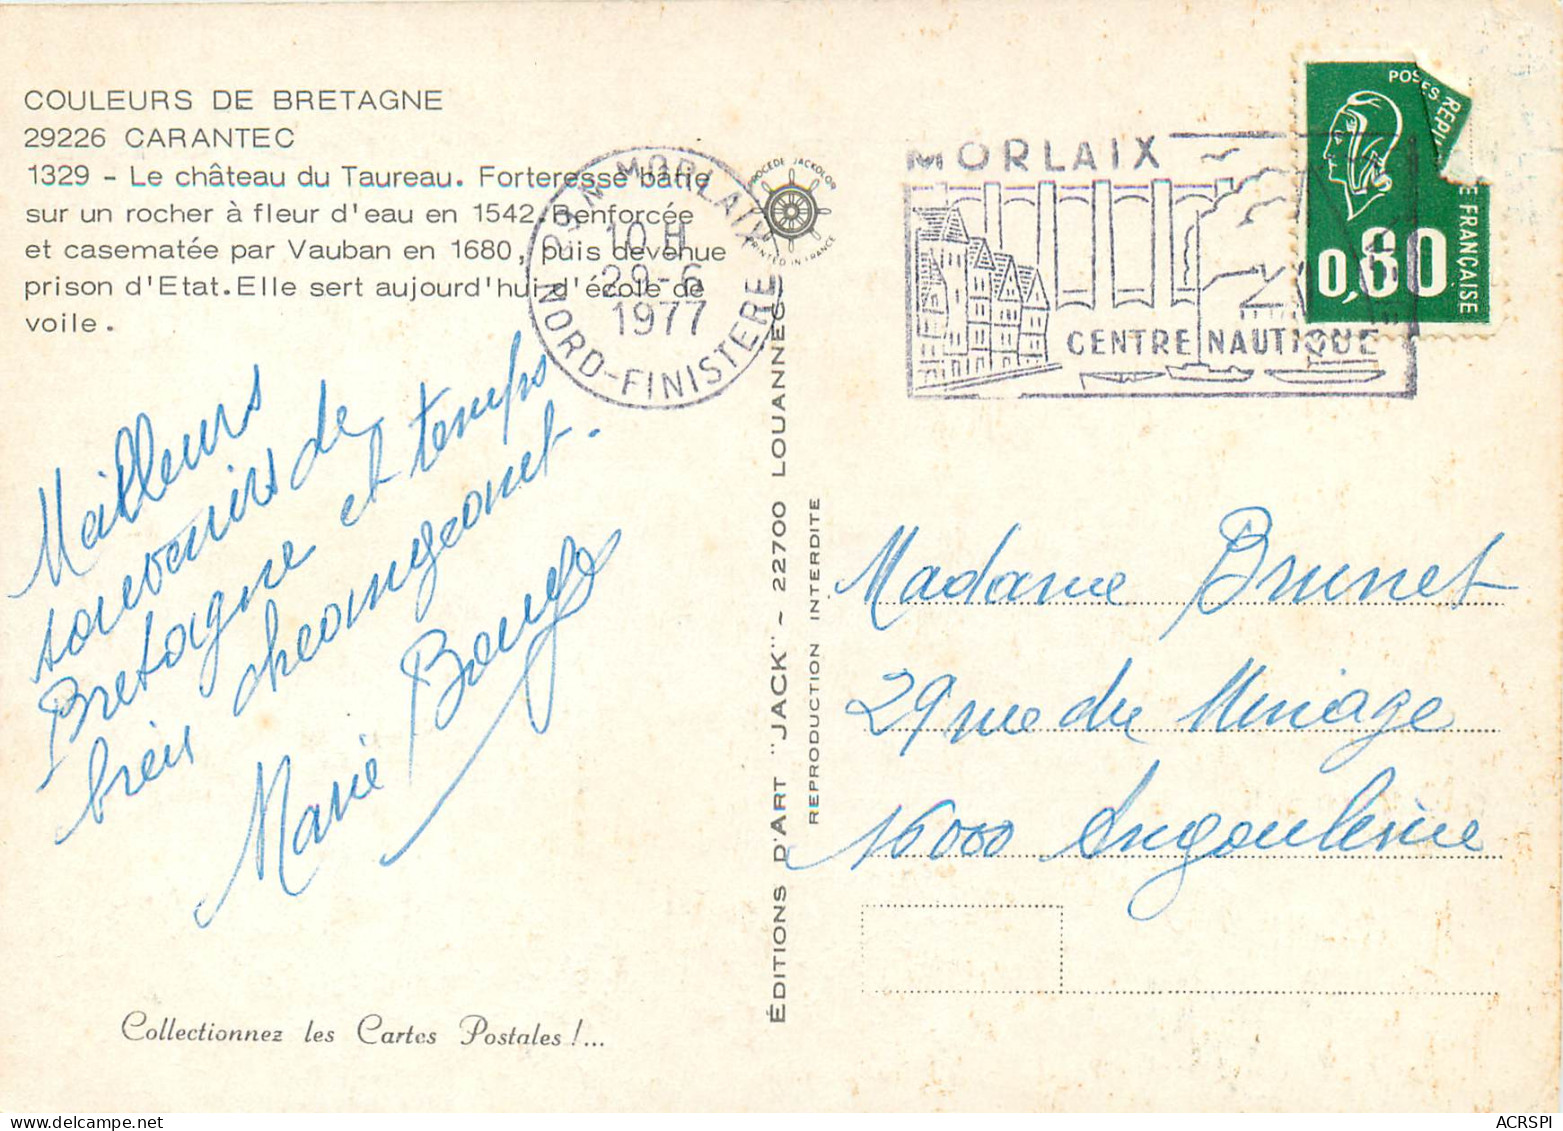 COULEURS DE BRETAGNE
29226 CARANTEC
1329 - Le château du Taureau. Forteresse bâtie
sur un rocher à fleur d'eau en 1542. Renforcée
et casematée par Vauban en 1680, puis devenue
prison d'Etat. Elle sert aujourd'hui d'école de
voile.
Meilleurs
souvenirs de
Bretagne et temps
bien changeant.
Marie
Collectionnez les Cartes Postales !...
29 N MORLAIX
10 H
29-6
1977
NORD-FINISTERE
PROCEDE JACKOLOR
PRINTED IN FRANCE
ÉDITIONS D'ART "JACK" - 22700 LOUANNEC
REPRODUCTION INTERDITE
MORLAIX
CENTRE NAUTIQUE
POSTES
0,80
FRANÇAISE
Madame Brunet
29 rue du Minage
16000 Angoulême
ACRSPI